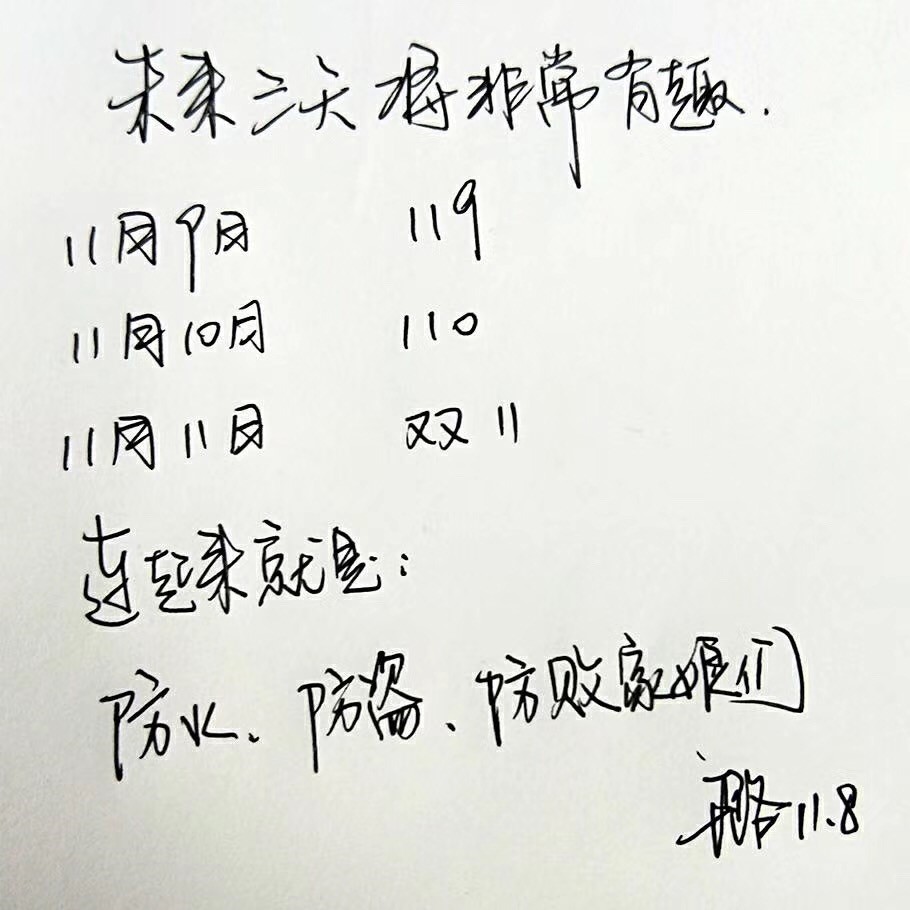 未来三天将非常有趣.
11月9日 119
11月10日 110
11月11日 双11
连起来就是:
防火、防盗、防败家娘们
11.8